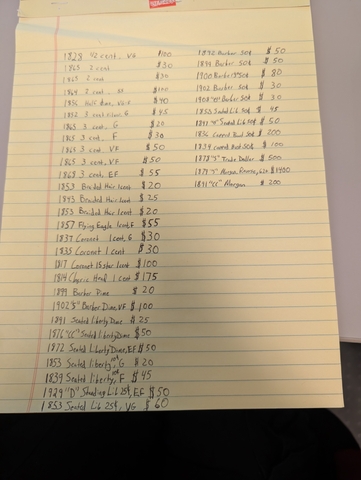 1828 1/2 cent, VG $100
1865 2 cent $30
1865 2 cent $30
1864 2 cent $100
1856 Half Dime, $40
1852 3 cent silver, G $45
1865 3 cent, G $20
1865 3 cent, F $30
1869 3 cent, VF $50
1865 3 cent, VF $50
1865 3 cent, EF $55
1853 Braided Hair 1 cent $20
1843 Braided Hair 1 cent $25
1853 Braided Hair 1 cent $20
1857 Flying Eagle 1 cent, F $55
1837 Coronet 1 cent, G $30
1835 Coronet 1 cent $30
1817 Coronet 15 star 1 cent $100
1814 Classic Head 1 cent $175
1899 Barber Dime $20
1902 "S" Barber Dime, VF $100
1891 Seated liberty Dime $25
1876 "CC" Seated liberty Dime $50
1872 Seated Liberty Dime, EF $50
1853 Seated liberty 10¢, G $20
1839 Seated liberty, 10¢ F $45
1929 "D" Standing Lib 25¢, EF $50
1853 Seated Lib 25¢, VG $60
1892 Barber 50¢ $50
Barber 50¢ $50
1900 Barber 50¢ $80
1902 Barber 50¢ $30
1908 "O" Barber 50¢ $30
1858 Seated Lib 50¢ $45
Seated Lib 50¢ $50
Bust 50¢ $200
1834 Bust 50¢ $100
1878 "S" Trade Dollar $500
Morgan, $1400
1891 "CC" Morgan $200